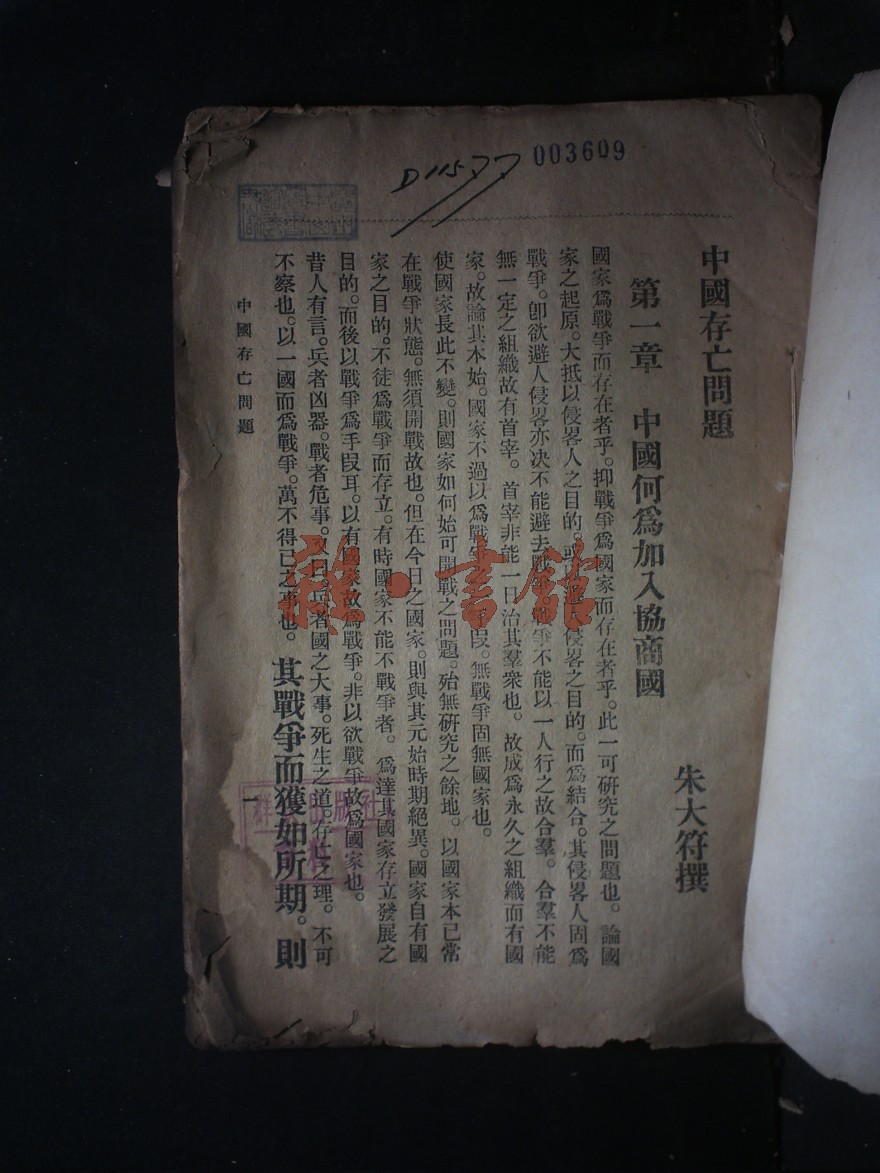 003609
D115.77
中國存亡問題
朱大符撰
第一章　中國何爲加入協商國
國家爲戰爭而存在者乎。抑戰爭爲國家而存在者乎。此一可硏究之問題也。論國
家之起原。大抵以侵畧人之目的。或以避人侵畧之目的。而爲結合。其侵畧人固爲
戰爭。卽欲避人侵畧亦决不能避去戰爭。戰爭不能以一人行之故合羣。合羣不能
無一定之組織故有首宰。首宰非能一日治其羣衆也。故成爲永久之組織而有國
家。故論其本始。國家不過以爲戰爭之手段。無戰爭固無國家也。
使國家長此不變。則國家如何始可開戰之問題。殆無硏究之餘地。以國家本已常
在戰爭狀態。無須開戰故也。但在今日之國家。則與其元始時期絕異。國家自有國
家之目的。不徒爲戰爭而存立。有時國家不能不戰爭者。爲達其國家存立發展之
目的。而後以戰爭爲手段耳。以有國家故爲戰爭。非以欲戰爭故爲國家也。
昔人有言。兵者凶器。戰者危事。又曰。兵者國之大事。死生之道。存亡之理。不可
不察也。以一國而爲戰爭。萬不得已之事也。其戰爭而獲如所期。則
中國存亡問題
一
雜·書館